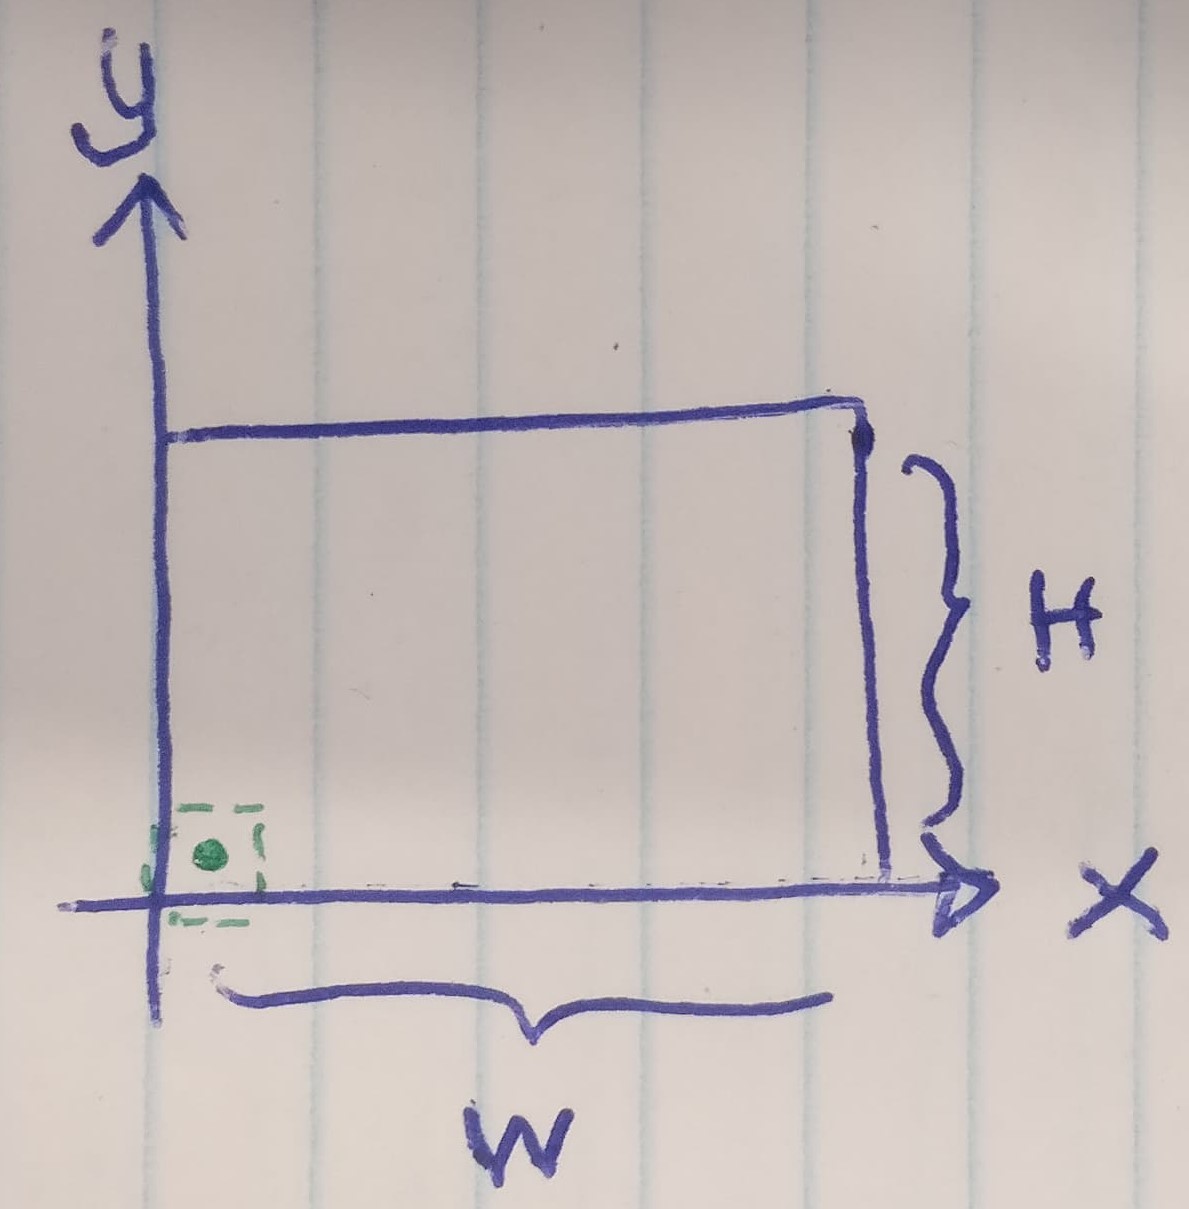 y
H
X
W